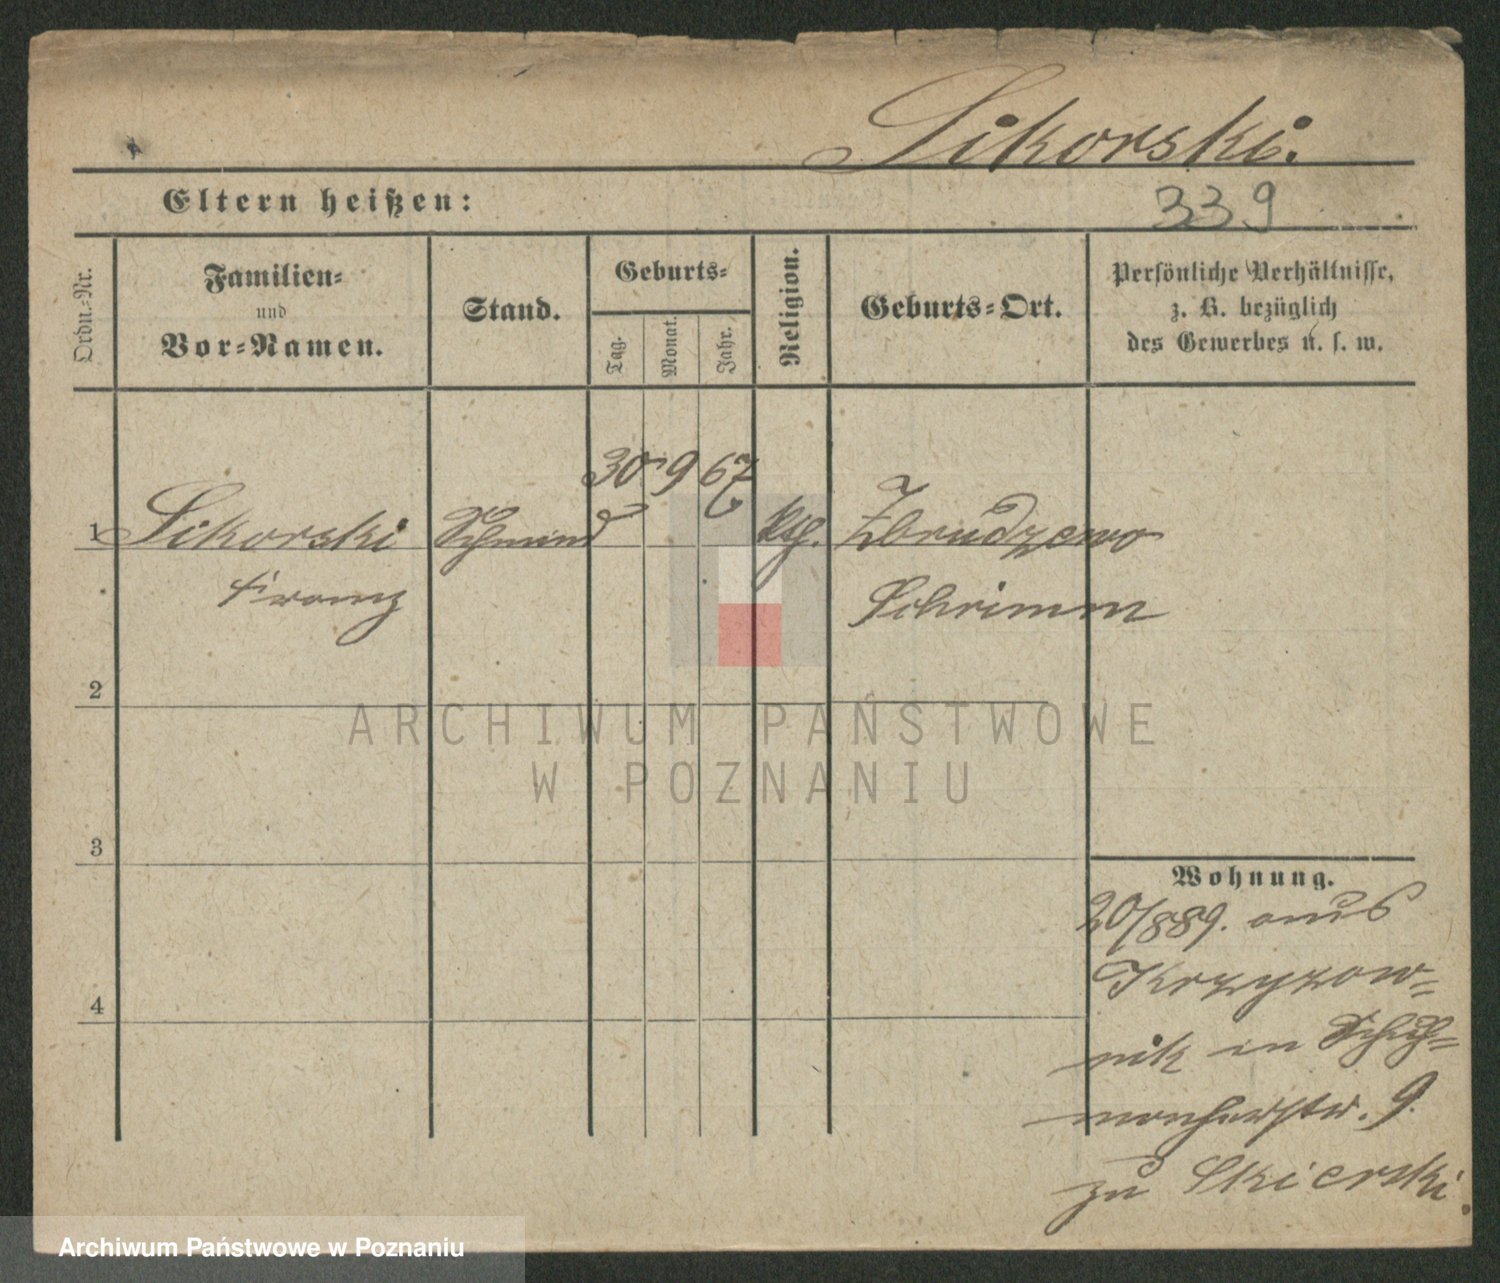 Sikorski.
Eltern heißen:
339
Ordn.-Nr.
Familien-
und
Vor-Namen.
Stand.
Geburts-
Tag.
Monat.
Jahr.
Religion.
Geburts-Ort.
Persönliche Verhältnisse,
z. B. bezüglich
des Gewerbes u. s. w.
30 9 67
1 Sikorski Schmied kth. Zbrudzewo
Franz Schrimm
2
3
4
Wohnung.
20/889. aus
Krzyzow=
nik in Schuh=
macherstr. 9.
zu Skierski.
ARCHIWUM PAŃSTWOWE
W POZNANIU
Archiwum Państwowe w Poznaniu